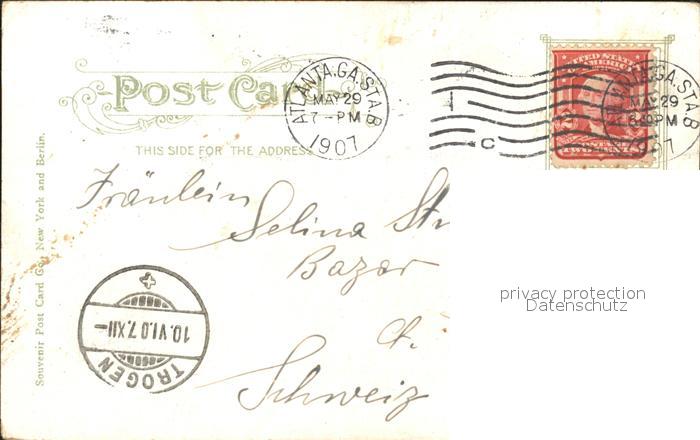 Post Card
THIS SIDE FOR THE ADDRESS
ATLANTA, GA. STA. B
MAY 29
7-PM
1907
C
UNITED STATES
ATLANTA, GA. STA. B
MAY 29
1907
Fräulein
Selina Str
Bazar
Ct.
Schweiz
TROGEN
10.VI.07.XII-
Souvenir Post Card Co., New York and Berlin.
privacy protection
Datenschutz